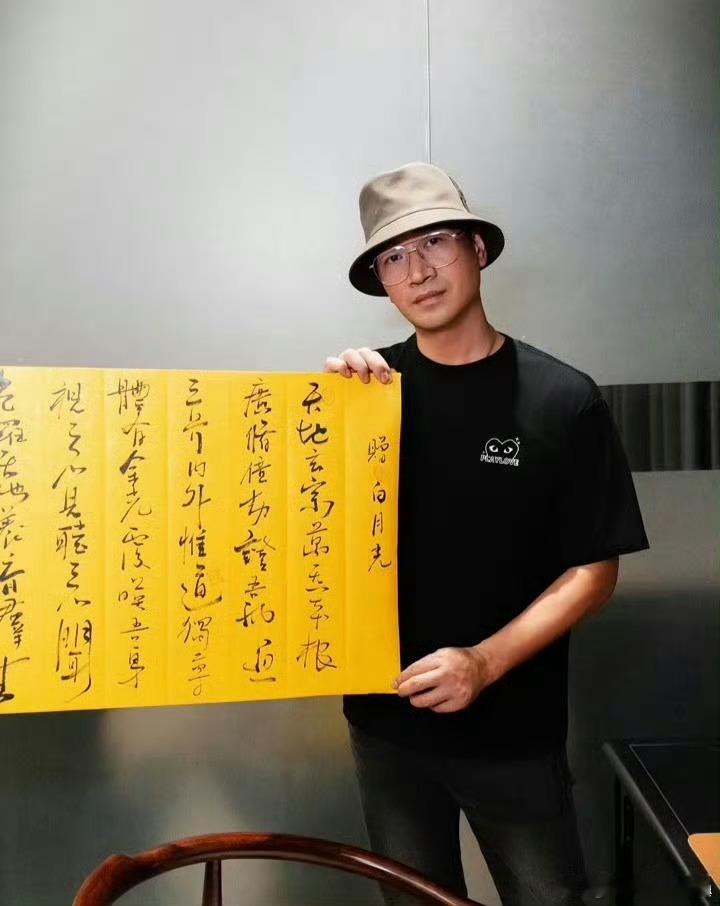 贈 白月光
天地玄宗萬炁本根
廣脩億劫證吾神通
三界内外惟道獨尊
體有金光覆映吾身
視之不見聽之不聞
包羅天地養育羣生
PLAYLOVE